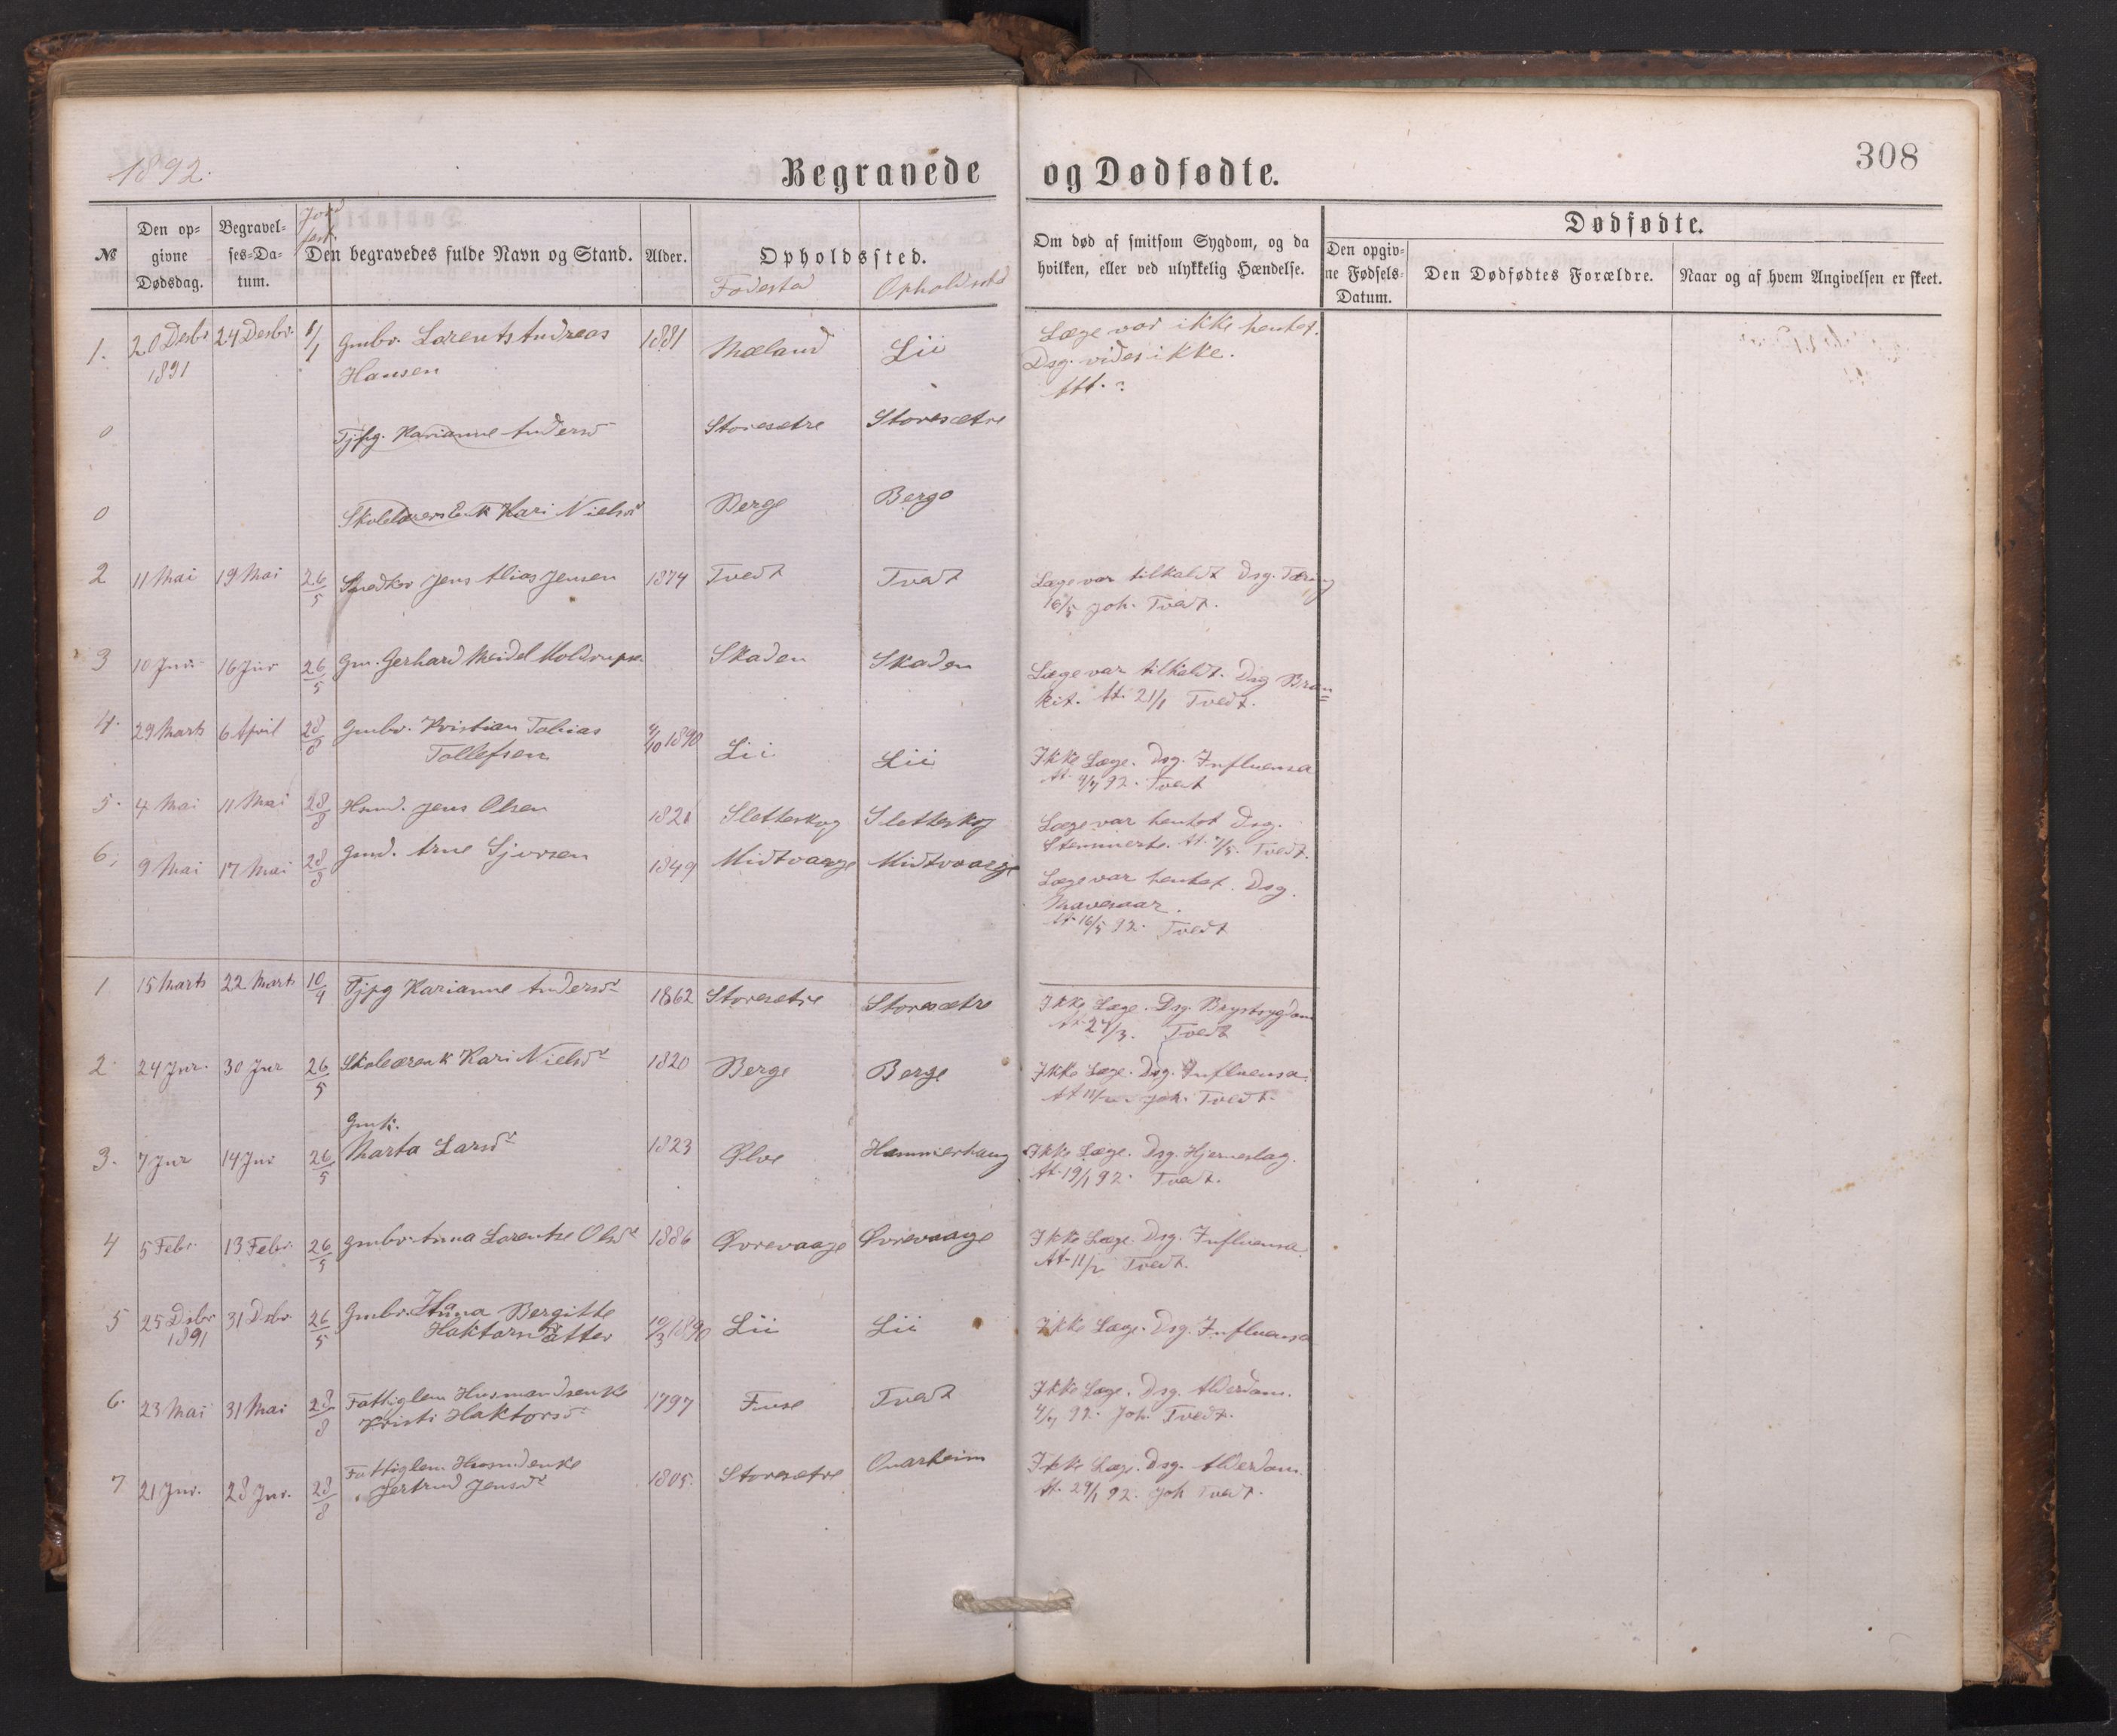 1892.
Begravede og Dødfødte.
308
№
Den op=
givne
Dødsdag.
Begravel=
ses=Da=
tum.
Jord
fest.
Den begravedes fulde Navn og Stand.
Alder.
Opholdssted.
Fødested
Opholdsstd
Om død af smitsom Sygdom, og da
hvilken, eller ved ulykkelig Hændelse.
Dødfødte.
Den opgiv=
ne Fødsels=
Datum.
Den Dødfødtes Forældre.
Naar og af hvem Angivelsen er skeet.
1. 20 Desbr 24 Desbr. 6/1 Gmbr. Lorents Andreas 1881 Mæland Lii Læge var ikke hentet.
1891 Hansen Dsg. vides ikke.
Att. :
0 Tjpg. Karianne Andersd Storesætre Storesætre
0 Skolelærerenk Kari Nielsdr Berge Berge
2 11 Mai 19 Mai 26/5 Snedker Jens Alias Jensen 1874 Tvedt Tvedt Læge var tilkaldt Dsg. Tæring
16/5 Joh. Tvedt.
3 10 Jnr. 16 Jnr 26/5 Gm. Gerhard Meidel Moldrupsen Skaden Skaden Læge var tilkaldt. Dsg Bron=
kit. At. 21/1 Tvedt.
4. 29 Marts 6 April 28/8 Gmbr. Kristian Tobias 4/10 1890 Lii Lii Ikke Læge. Dsg. Influensa
Tollefsen At. 4/7 92. Tvedt
5. 4 Mai 11 Mai 28/8 Hsmd. Jens Olsen 1821 Sletteskog Sletteskog Læge var hentet Dsg.
At. 7/5. Tvedt.
6. 9 Mai 17 Mai 28/8 Gmd. Arne Sjursen 1849 Midtvaage Midtvaage Læge var hentet. Dsg.
Mavesaar.
At 16/5 92. Tvedt
1 15 Marts 22 Marts 10/4 Tjpg Karianne Andersdr 1862 Storesætre Storesætre Ikke Læge. Dsg. Brystsygdom
At 27/3. Tvedt
2. 24 Jnr. 30 Jnr 26/5 Skolelærenk Kari Nielsdr 1820 Berge Berge Ikke Læge. Dsg. Influensa.
At 11/2. Joh. Tvedt.
Gmk.
3. 7 Jnr 14 Jnr 26/5 Marta Larsdr 1823 Ølve Hammerhaug Ikke Læge. Dsg. Hjerneslag.
At. 19/1 92. Tvedt.
4 5 Febr. 13 Febr. 26/5 Gmbr. Anna Lorentse Olsdr 1886 Øvrevaage Øvrevaage Ikke Læge. Dsg. Influensa.
At 11/2 Tvedt.
5 25 Dsbr 31 Dsbr. 26/5 Gmbr. Anna Bergitte 10/3 1890 Lii Lii Ikke Læge. Dsg. Influensa
1891 Haktorsdatter
6. 23 Mai 31 Mai 28/8 Fattiglem Husmandsenke 1797 Fuse Tvedt Ikke Læge. Dsg. Alderdom.
Kristi Haktorsdr 4/7 92. Joh. Tvedt.
7. 21 Jnr. 28 Jnr. 28/8 Fattiglem Husmdenke 1805. Storesætre Onarheim Ikke Læge. Dsg. Alderdom.
Gertrud Jensdr At. 29/1 92. Joh Tvedt.